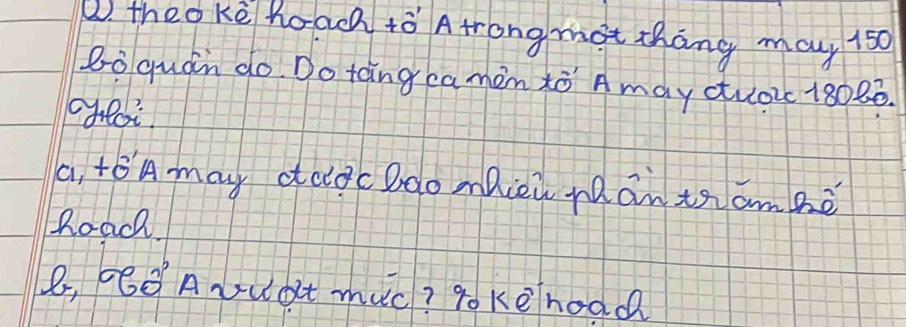 ②. theo kế hoạch tổ A trong một tháng may 150
bộ quần áo. Do tăng ca nên tổ A may được 180 bộ.
a, tổ A may được bao nhiêu phần trăm kế
hoạch.
b, tổ A vượt mức ? % kế hoạch